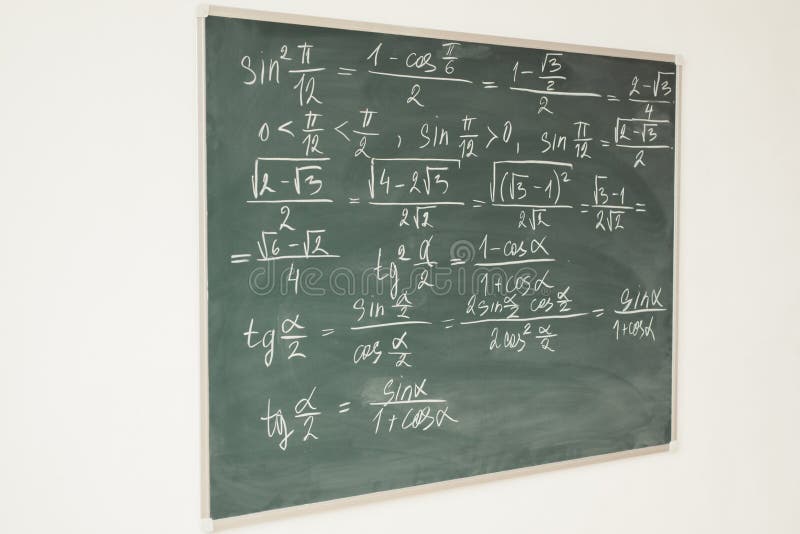 sin² π/12 = (1 - cos π/6)/2 = (1 - √3/2)/2 = (2 - √3)/4
0 < π/12 < π/2 , sin π/12 > 0, sin π/12 = √(2 - √3)/2
√(2 - √3)/2 = √(4 - 2√3)/(2√2) = √((√3 - 1)²)/(2√2) = (√3 - 1)/(2√2) =
= (√6 - √2)/4 tg² α/2 = (1 - cosα)/(1 + cosα)
dreamstime
tg α/2 = (sin α/2)/(cos α/2) = (2sin α/2 cos α/2)/(2cos² α/2) = sinα/(1+cosα)
tg α/2 = sinα/(1 + cosα)